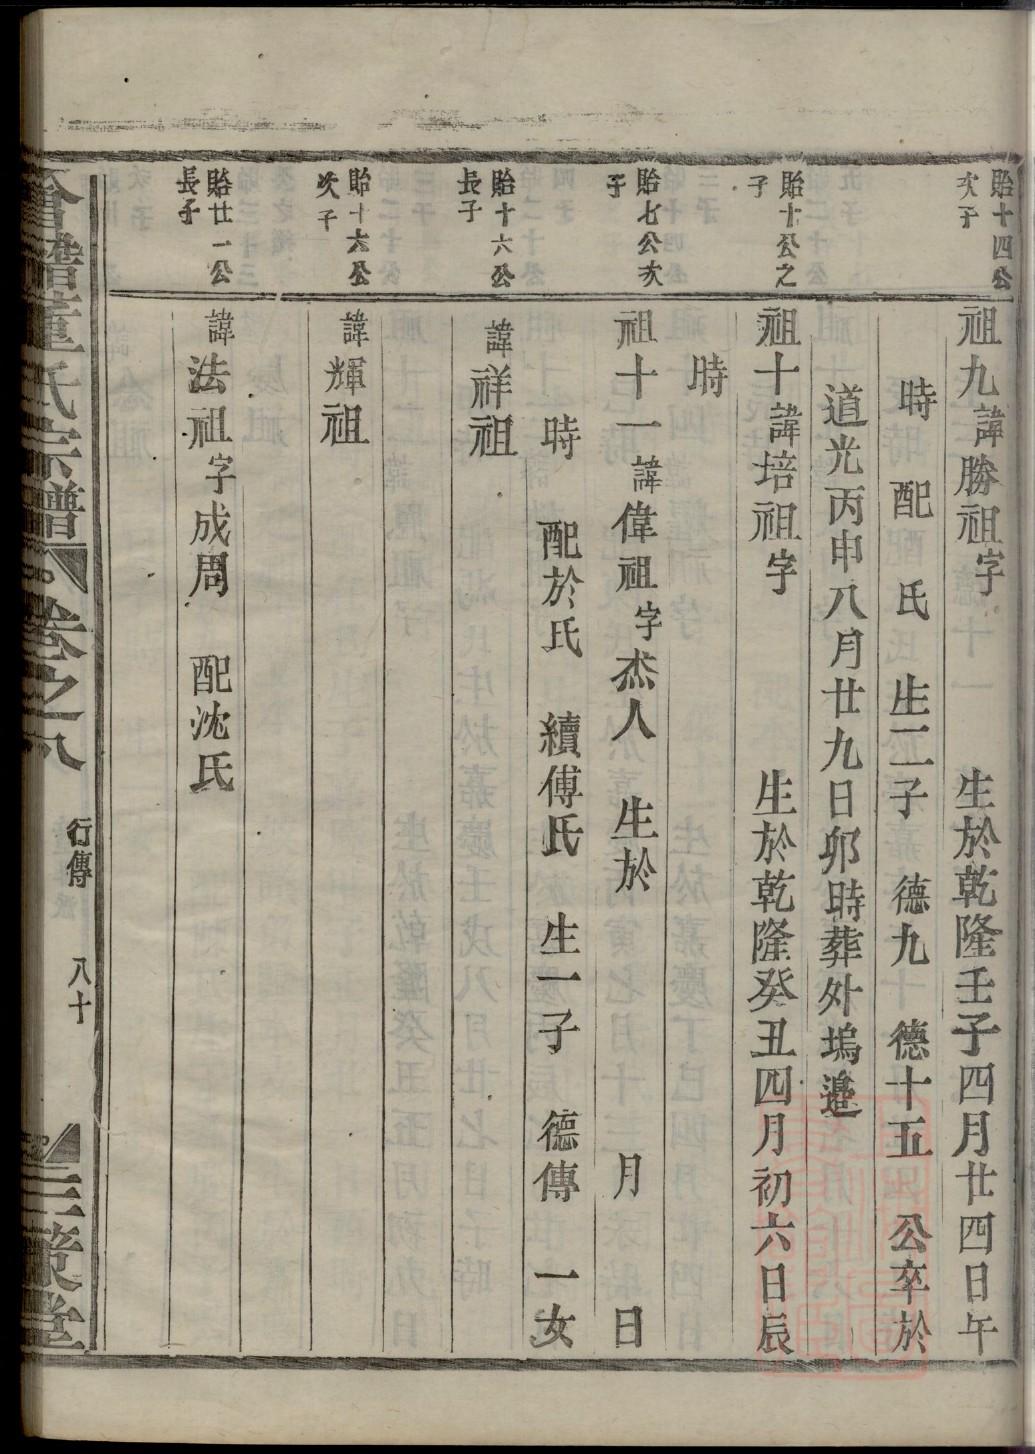 貽十四公
次子
祖九諱勝祖字 生於乾隆壬子四月廿四日午
時 配 氏 生二子 德九 德十五 公卒於
道光丙申八月廿九日卯時葬外塢邉
貽十公之
子
祖十諱培祖字 生於乾隆癸丑四月初六日辰
時
貽七公次
子
祖十一諱偉祖字杰人 生於 月 日
時 配於氏 續傅氏 生一子 德傳 一女
貽十六公
長子
諱祥祖
貽十六公
次子
諱輝祖
貽廿一公
長子
諱法祖字成周 配沈氏
會稽童氏宗譜 卷之八 行傳 八十 三策堂